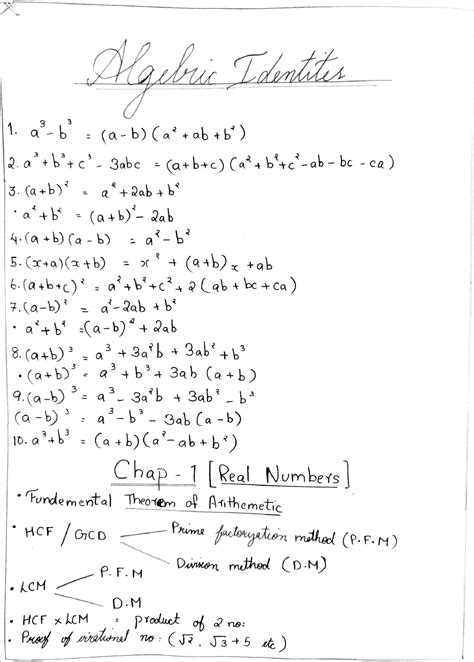 Algebric Identites
1. a³ - b³ = (a-b) (a² + ab + b²)
2. a³ + b³ + c³ - 3abc = (a+b+c) (a² + b² + c² - ab - bc - ca)
3. (a+b)² = a² + 2ab + b²
· a² + b² = (a+b)² - 2ab
4. (a+b) (a-b) = a² - b²
5. (x+a) (x+b) = x² + (a+b)x + ab
6. (a+b+c)² = a² + b² + c² + 2(ab + bc + ca)
7. (a-b)² = a² - 2ab + b²
· a² + b² = (a-b)² + 2ab
8. (a+b)³ = a³ + 3a²b + 3ab² + b³
· (a+b)³ = a³ + b³ + 3ab (a+b)
9. (a-b)³ = a³ - 3a²b + 3ab² - b³
(a-b)³ = a³ - b³ - 3ab (a-b)
10. a³ + b³ = (a+b) (a² - ab + b²)
Chap - 1 [Real Numbers]
· Fundemental Theorem of Arithemetic
· HCF / GCD
Prime factoryation method (P.F.M)
Division method (D.M)
· LCM
P.F.M
D.M
· HCF × LCM = product of 2 no:
· Proof of irrational no: (√2, √3 + 5 etc)